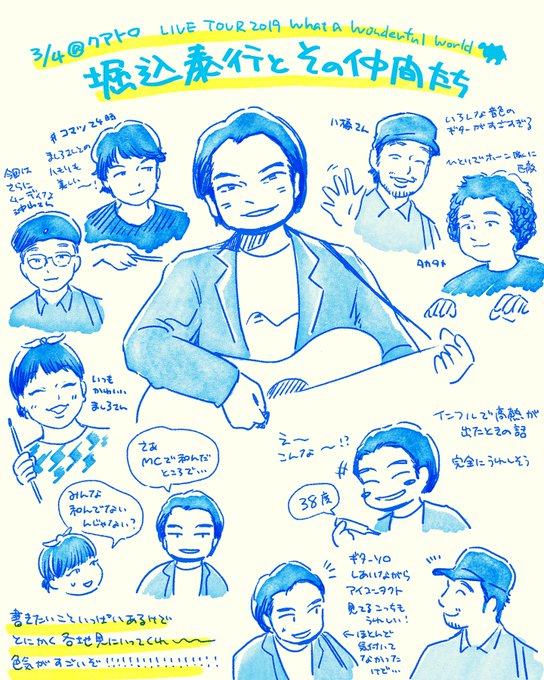 3/4 @クアトロ LIVE TOUR 2019 What a Wonderful World
堀込泰行とその仲間たち
#コマツ24時
ましろさんとの
ハモりも
美しい〜!
今回は
さらに
ムーディーな
沖山さん
八橋さん
いろんな音色の
ギターがすごすぎる
ひとりでホーン隊に
匹敵
タカタメ
いつも
かわいい
ましろさん
さあ
MCで和んだ
ところで…
みんな
和んでない
んじゃない?
え〜
こんな〜!?
38度
インフルで高熱が
出たときの話
完全にうれしそう
ギターソロ
しあいながら
アイコンタクト
見てるこっちも
うれしい!
←ほとんど
気付いて
なかった
けど…
書きたいこといっぱいあるけど
とにかく各地見にいってくれ〜
色気がすごいぞ!!!!!!!!!!!!!!!